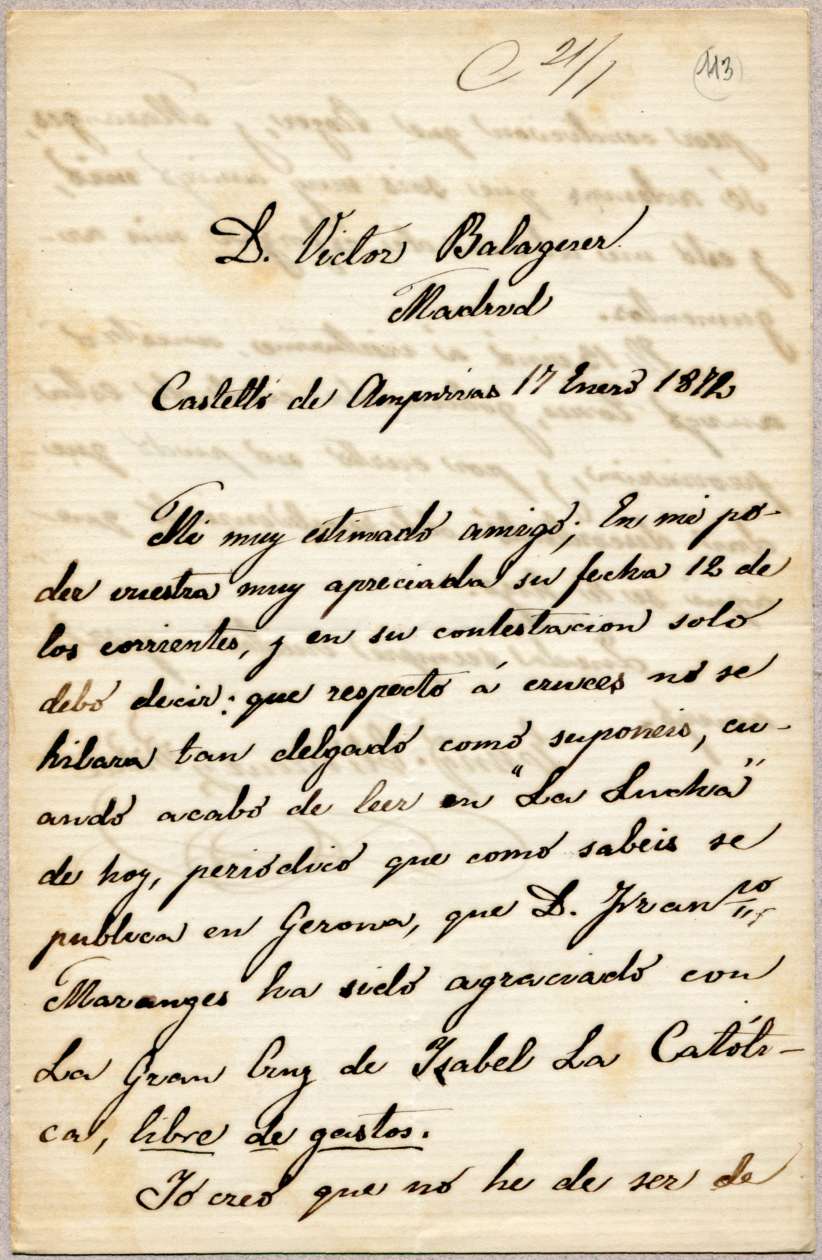 C 21/1
113
D. Victor Balaguer
Madrid
Castelló de Ampurias 17 Enero 1872
Mi muy estimado amigo; En mi po-
der vuestra muy apreciada su fecha 12 de
los corrientes, y en su contestacion solo
debo decir: que respecto á cruces no se
hilara tan delgado como suponeis, cu-
ando acabo de leer en "La Lucha"
de hoy, periódico que como sabeis se
publica en Gerona, que D. Fran.co
Maranges ha sido agraciado con
La Gran Cruz de Isabel La Católi-
ca, libre de gastos.
Yo creo que no he de ser de